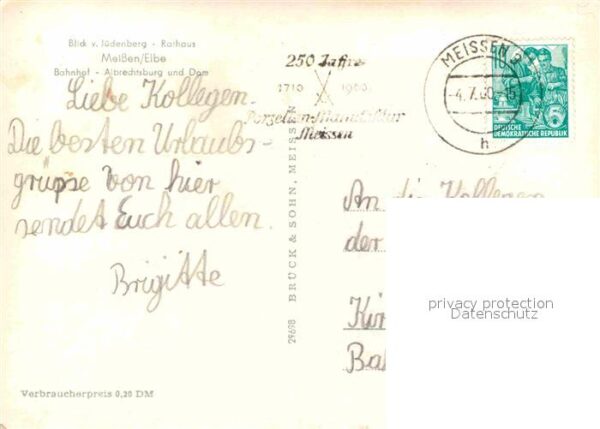 Blick v. Jüdenberg - Rathaus
Meißen/Elbe
Bahnhof - Albrechtsburg und Dom
Liebe Kollegen.
Die besten Urlaubs-
grüpse von hier
sendet Euch allen.
Brigitte
Verbraucherpreis 0,20 DM
250 Jahre
1710 1960
Porzellan-Manufaktur
Meissen
MEISSEN
-4.7.60.-15
h
DEUTSCHE
DEMOKRATISCHE REPUBLIK
29698 BRÜCK & SOHN, MEISSEN
An die Kollegen
der
privacy protection
Datenschutz